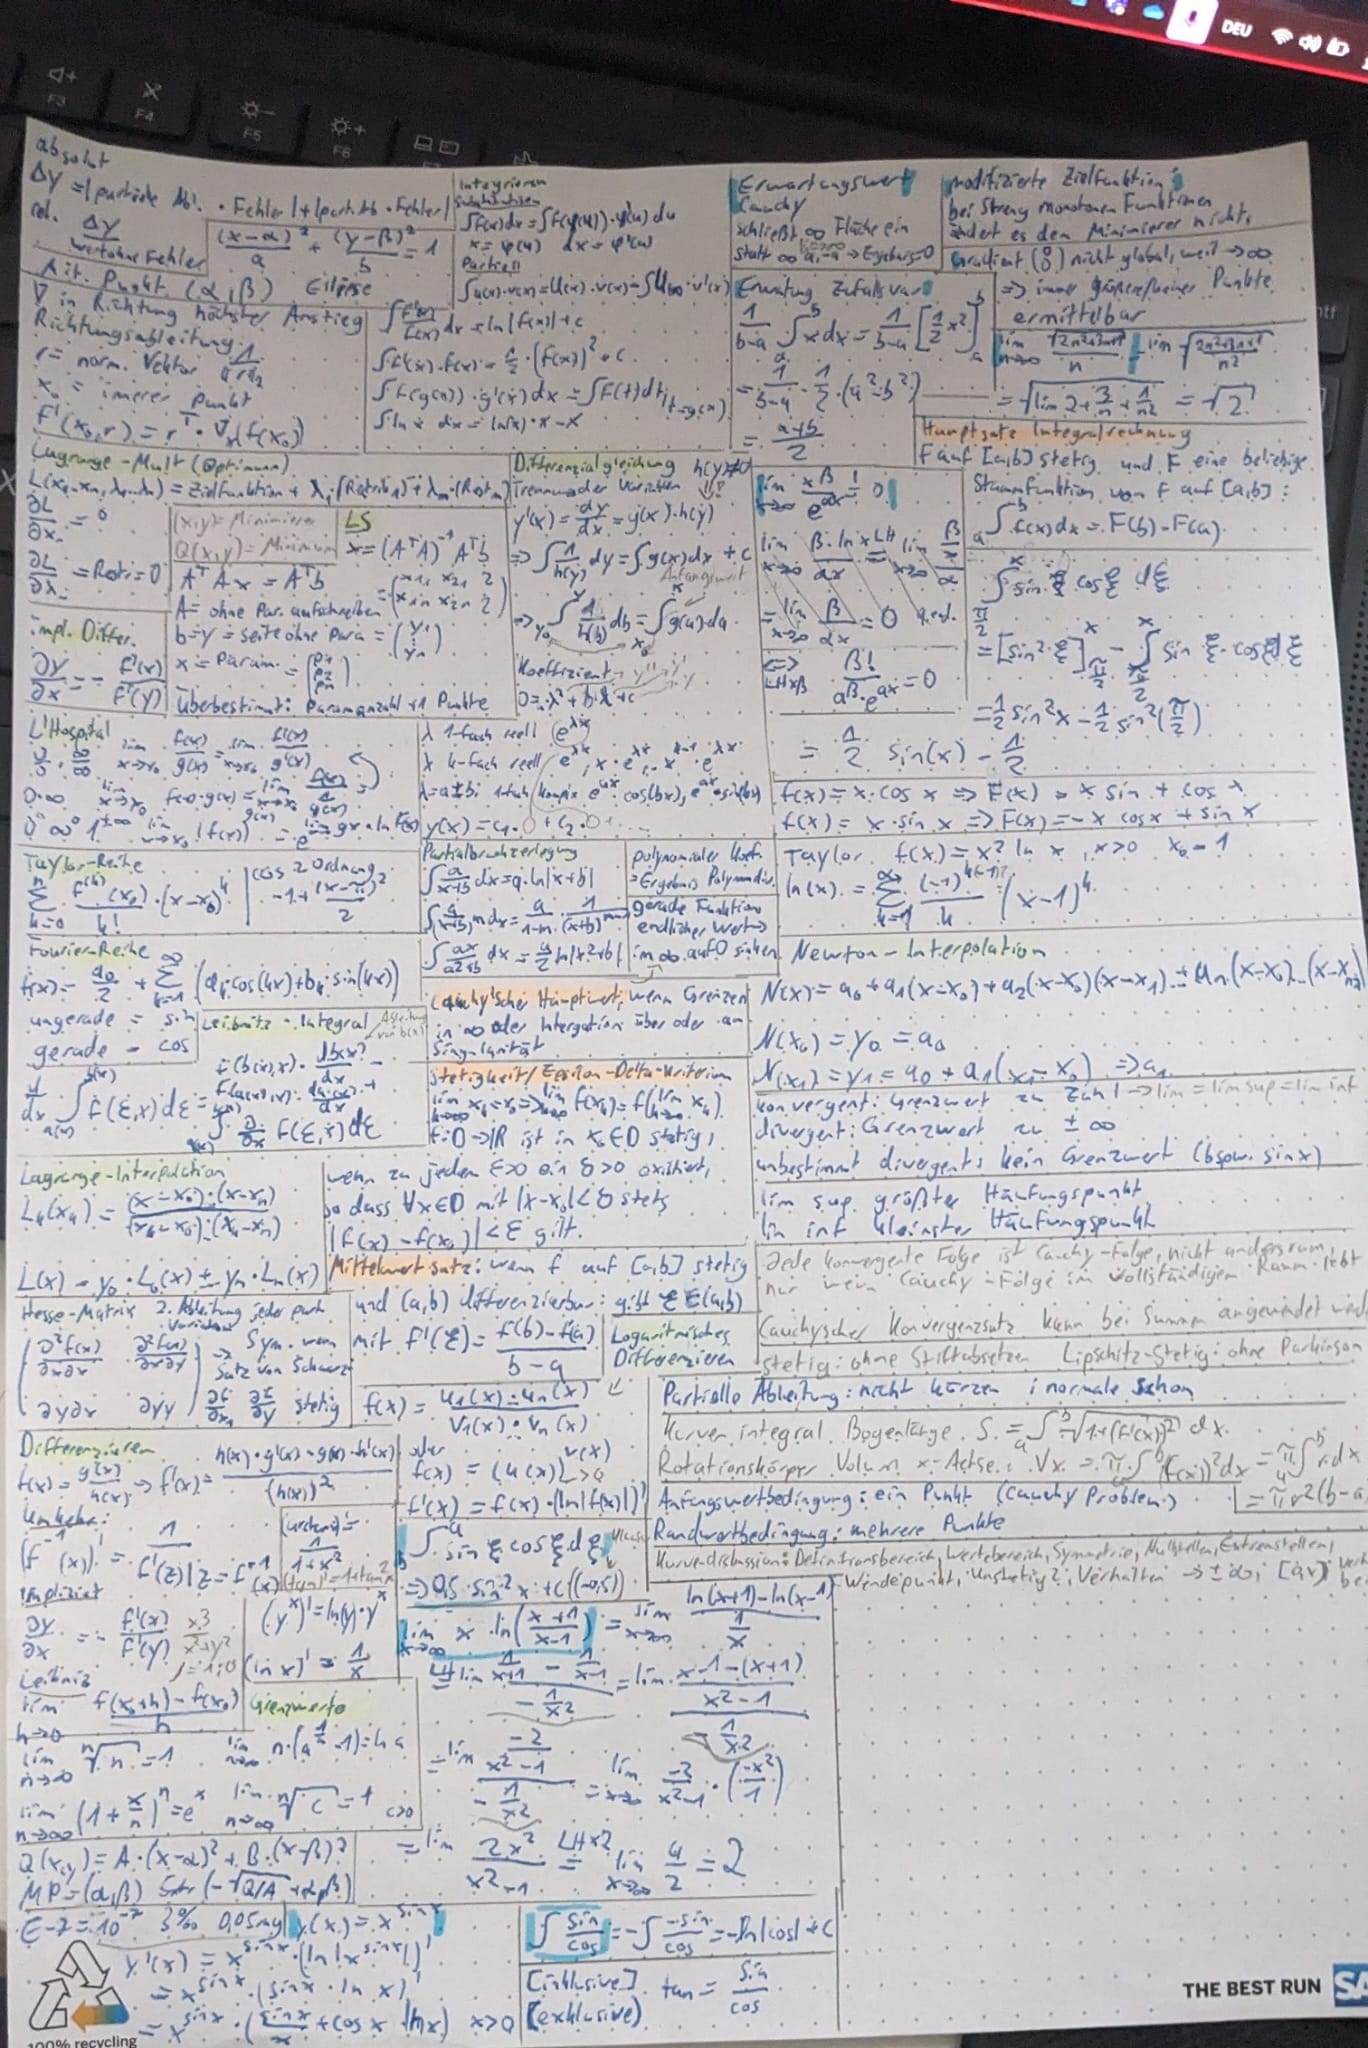 DEU
F3
F4
F5
F6
absolut
Δy = | partielle Abl. · Fehler | + | part. Ab · Fehler |
rel. Δy / wert ohne Fehler
(x-α)²/a + (y-β)²/b = 1
Mit. Punkt (α, β) Ellipse
∇ in Richtung höchster Anstieg
Richtungsableitung:
r = norm. Vektor
x₀ = innerer Punkt
f'(x₀, r) = rᵀ · ∇(f(x₀))
Integrieren
Substitution
∫f(x)dx = ∫f(φ(u)) · φ'(u) du
x = φ(u) dx = φ'(u)
Partiell
∫u'(x)·v(x) = u(x)·v(x) - ∫u(x)·v'(x)
∫f'(x)/f(x) dx = ln|f(x)| + c
∫f'(x)·f(x) = 1/2 · (f(x))² + c
∫f(g(x)) · g'(x) dx = ∫F(t)dt | t=g(x)
∫ln x dx = ln(x)·x - x
Erwartungswert
Cauchy
schließt ∞ Fläche ein
statt ∞ a, -a → Ergebnis = 0
Erwartung Zufallsvar.
1/(b-a) ∫ₐᵇ x dx = 1/(b-a) [1/2 x²]ₐᵇ
= 1/(b-a) · 1/2 · (a²-b²)
= (a+b)/2
modifizierte Zielfunktion:
bei streng monotonen Funktionen
ändert es den Minimierer nicht.
Gradient (0 0) nicht global, weil → ∞
=> immer größere/kleiner Punkte
ermittelbar
lim n→∞ √(2n²+3n+1)/n = lim √((2n²+3n+1)/n²)
= √(lim 2 + 3/n + 1/n²) = √2
Hauptsatz Integralrechnung
F auf [a,b] stetig und F eine beliebige
Stammfunktion von f auf [a,b]:
∫ₐᵇ f(x)dx = F(b) - F(a)
Lagrange-Mult (Optimum)
L(x₁...xₙ, λ₁...λₙ) = Zielfunktion + λ₁(Restrik 1) + λₘ·(Rest m)
∂L/∂x = 0
∂L/∂λ = Rest i = 0
(x,y) = Minimierer
Q(x,y) = Minimum
LS
x = (AᵀA)⁻¹ Aᵀb
AᵀAx = Aᵀb
A = ohne Par. aufschreiben =
b = y = seite ohne Para =
x = Param. =
überbestimmt: Paramanzahl +1 Punkte
impl. Differ.
∂y/∂x = - f'(x)/f'(y)
Differenzialgleichung h(y)≠0
Trennung der Variablen
y'(x) = dy/dx = g(x)·h(y)
=> ∫1/h(y) dy = ∫g(x)dx + c
Anfangswert
=> ∫ 1/h(b) db = ∫ g(a) da
Koeffizient y'' y' y
0 = λ² + b·λ + c
lim x→∞ x^β/e^(αx) = 0
lim x→∞ β·ln x/αx LH= lim x→∞ (β/x)/α
= lim x→∞ β/αx = 0 q.e.d.
<=> LH×β β!/(α^β · e^(αx)) = 0
∫ sin ξ cos ξ dξ
= [sin² ξ] - ∫ sin ξ · cos ξ dξ
= 1/2 sin²x - 1/2 sin²(π/2)
= 1/2 sin(x) - 1/2
L'Hospital
0/0, ∞/∞ lim x→x₀ f(x)/g(x) = lim x→x₀ f'(x)/g'(x)
0·∞ lim x→x₀ f(x)·g(x) = lim x→x₀
0⁰ ∞⁰ 1^±∞ lim x→x₀ (f(x)) = e^lim gx·ln f(x)
λ 1-fach reell e^λx
λ k-fach reell e^λx, x·e^λx, ..x^k-1·e^λx
λ = a±bi 1-fach komplx e^ax·cos(bx), e^ax·sin(bx)
y(x) = c₁· + c₂·
f(x) = x·cos x => F(x) = x sin + cos x
f(x) = x·sin x => F(x) = -x cos x + sin x
Taylor-Reihe
Σ f^(k)(x₀)/k! · (x-x₀)^k
cos 2 Ordnung
-1 + (x-π)²/2
Partialbruchzerlegung
∫ a/(x+b) dx = a·ln|x+b|
∫ a/(x+b)^m dx = a/(1-m) · 1/(x+b)^(m-1)
∫ ax/(x²+b) dx = a/2 ln|x²+b|
polynomialer Koef.
= Ergebnis Polynomdiv.
gerade Funktion
endlicher Wert =>
im ∞ auf 0 sinken
Taylor f(x) = x² ln x, x>0 x₀ = 1
ln(x) = Σ (-1)^(k+1)/k (x-1)^k
Fourier-Reihe
f(x) = a₀/2 + Σ (aₖ cos(kx) + bₖ sin(kx))
ungerade = sin
gerade = cos
Leibnitz-Integral
Ableitung von b(x)
d/dx ∫ f(ξ,x) dξ = f(b(x),x) · db(x)/dx - f(a(x),x) · da(x)/dx + ∫ ∂/∂x f(ξ,x) dξ
Cauchy'scher Hauptwert: wenn Grenzen
in ∞ oder Intergation über oder am
Singularität
Stetigkeit / Epsilon-Delta-Kriterium
lim xₖ = x₀ => lim f(xₖ) = f(lim xₖ)
f: D → ℝ ist in x₀ ∈ D stetig,
wenn zu jedem ε>0 ein δ>0 existiert,
so dass ∀x∈D mit |x-x₀| < δ stets
|f(x) - f(x₀)| < ε gilt.
Newton-Interpolation
N(x) = a₀ + a₁(x-x₀) + a₂(x-x₀)(x-x₁) ... + aₙ(x-x₀)...(x-xₙ₋₁)
N(x₀) = y₀ = a₀
N(x₁) = y₁ = a₀ + a₁(x₁-x₀) => a₁
konvergent: Grenzwert zu Zahl → lim = lim sup = lim inf
divergent: Grenzwert zu ±∞
unbestimmt divergent: kein Grenzwert (bspw. sin x)
lim sup größter Häufungspunkt
lim inf kleinster Häufungspunkt
Lagrange-Interpolation
Lₖ(xₖ) = (x-x₀)·(x-xₙ)/(xₖ-x₀)·(xₖ-xₙ)
L(x) = y₀·L₀(x) + yₙ·Lₙ(x)
Jede konvergente Folge ist Cauchy-Folge, nicht andersrum,
nur wenn Cauchy-Folge im vollständigem Raum lebt
Cauchyscher Konvergenzsatz kann bei Summen angewendet werd
stetig: ohne Stiftabsetzen Lipschitz-Stetig: ohne Parkinson
Mittelwertsatz: wenn f auf [a,b] stetig
und (a,b) differenzierbar: gibt ξ∈(a,b)
mit f'(ξ) = (f(b)-f(a))/(b-a)
Hesse-Matrix 2. Ableitung jeder part
∂²f(x)/∂x∂x ∂²f(x)/∂x∂y
∂y∂x ∂yy
→ Sym. wenn
Satz von Schwarz
∂f/∂x, ∂f/∂y stetig
Logarithmisches
Differenzieren
f(x) = u₁(x)·uₙ(x)/v₁(x)·vₙ(x)
oder
f(x) = (u(x))^v(x)
f'(x) = f(x)·(ln|f(x)|)'
Partielle Ableitung: nicht kürzen, normale schon
Kurvenintegral Bogenlänge S = ∫ₐᵇ √(1+(f'(x))²) dx
Rotationskörper Volum x-Achse: Vx = π·∫ₐᵇ (f(x))² dx = π∫ᵇ r² dx
= π r²(b-a
Anfangswertbedingung: ein Punkt (Cauchy Problem)
Randwertbedingung: mehrere Punkte
Kurvendiskussion: Definitionsbereich, Wertebereich, Symmetrie, Nullstellen, Extremstellen,
Wendepunkt, Unstetig?, Verhalten → ±∞, [a,x)
Differenzieren
f(x) = g(x)/h(x) → f'(x) = (h(x)·g'(x) - g(x)·h'(x))/(h(x))²
Umkehr:
(f⁻¹(x))' = 1/f'(z) | z=f⁻¹(x)
(arctan)' = 1/(1+x²)
(tan)' = 1+tan²x
Impliziat
∂y/∂x = - f'(x)/f'(y)
(y^x)' = ln(y)·y^x
(ln x)' = 1/x
Leibniz
lim h→0 (f(x₀+h) - f(x₀))/h
∫ sin ξ cos ξ dξ
=> 0,5·sin²x + c ((-0,5))
Grenzwerte
lim n→∞ ⁿ√n = 1 lim n→∞ n·(a^(1/n) - 1) = ln a
lim n→∞ (1+x/n)^n = e^x lim n→∞ ⁿ√c = 1 c>0
lim x→∞ x·ln((x+1)/(x-1)) = lim x→∞ (ln(x+1) - ln(x-1))/(1/x)
LH lim (1/(x+1) - 1/(x-1))/(-1/x²) = lim ((x-1-(x+1))/(x²-1))/(-1/x²)
= lim (-2/(x²-1))/(-1/x²) = lim x→∞ -2/(x²-1) · (-x²/1)
= lim 2x²/(x²-1) LH×2 = lim x→∞ 4/2 = 2
Q(x,y) = A·(x-α)² + B·(y-β)²
MP = (α,β)
E-2 = 10⁻² 3‰ 0,05mg
y(x) = x^sin x
y'(x) = x^sin x · (ln|x^sin x|)'
= x^sin x · (sin x · ln x)'
= x^sin x · (sin x/x + cos x · ln x) x>0
∫ sin/cos = -∫ -sin/cos = -ln|cos| + C
[inklusive]
(exklusive)
tan = sin/cos
100% recycling
THE BEST RUN SA